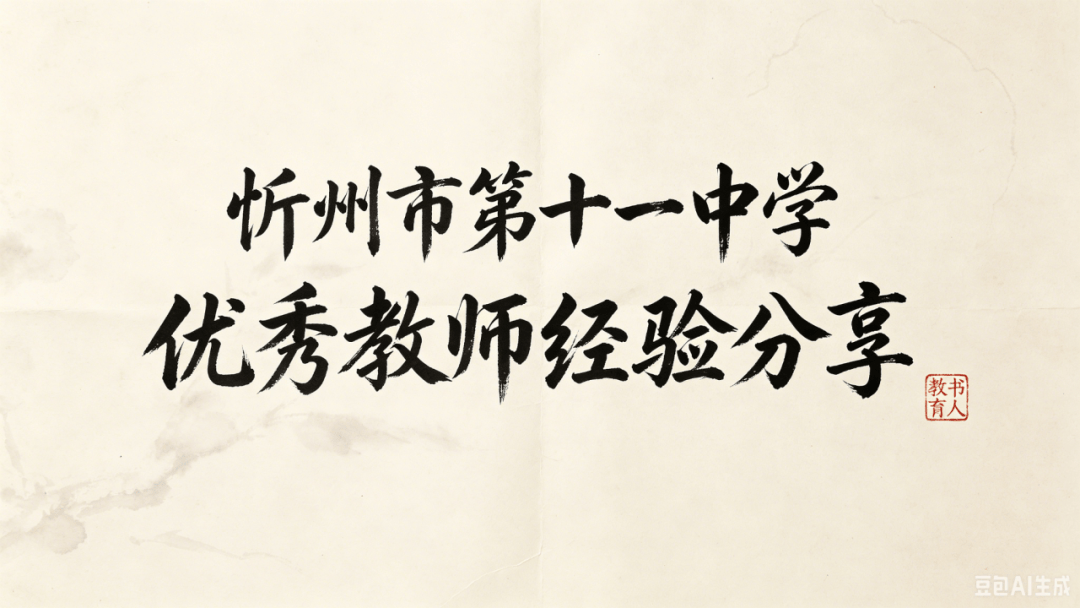 忻州市第十一中学
优秀教师经验分享
教书
育人
豆包AI生成